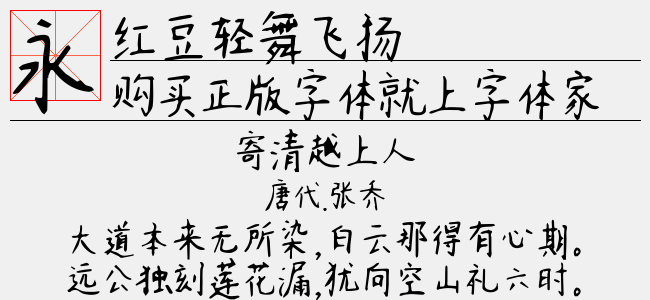 永
红豆轻舞飞扬
购买正版字体就上字体家
寄清越上人
唐代.张乔
大道本来无所染,白云那得有心期。
远公独刻莲花漏,犹向空山礼六时。